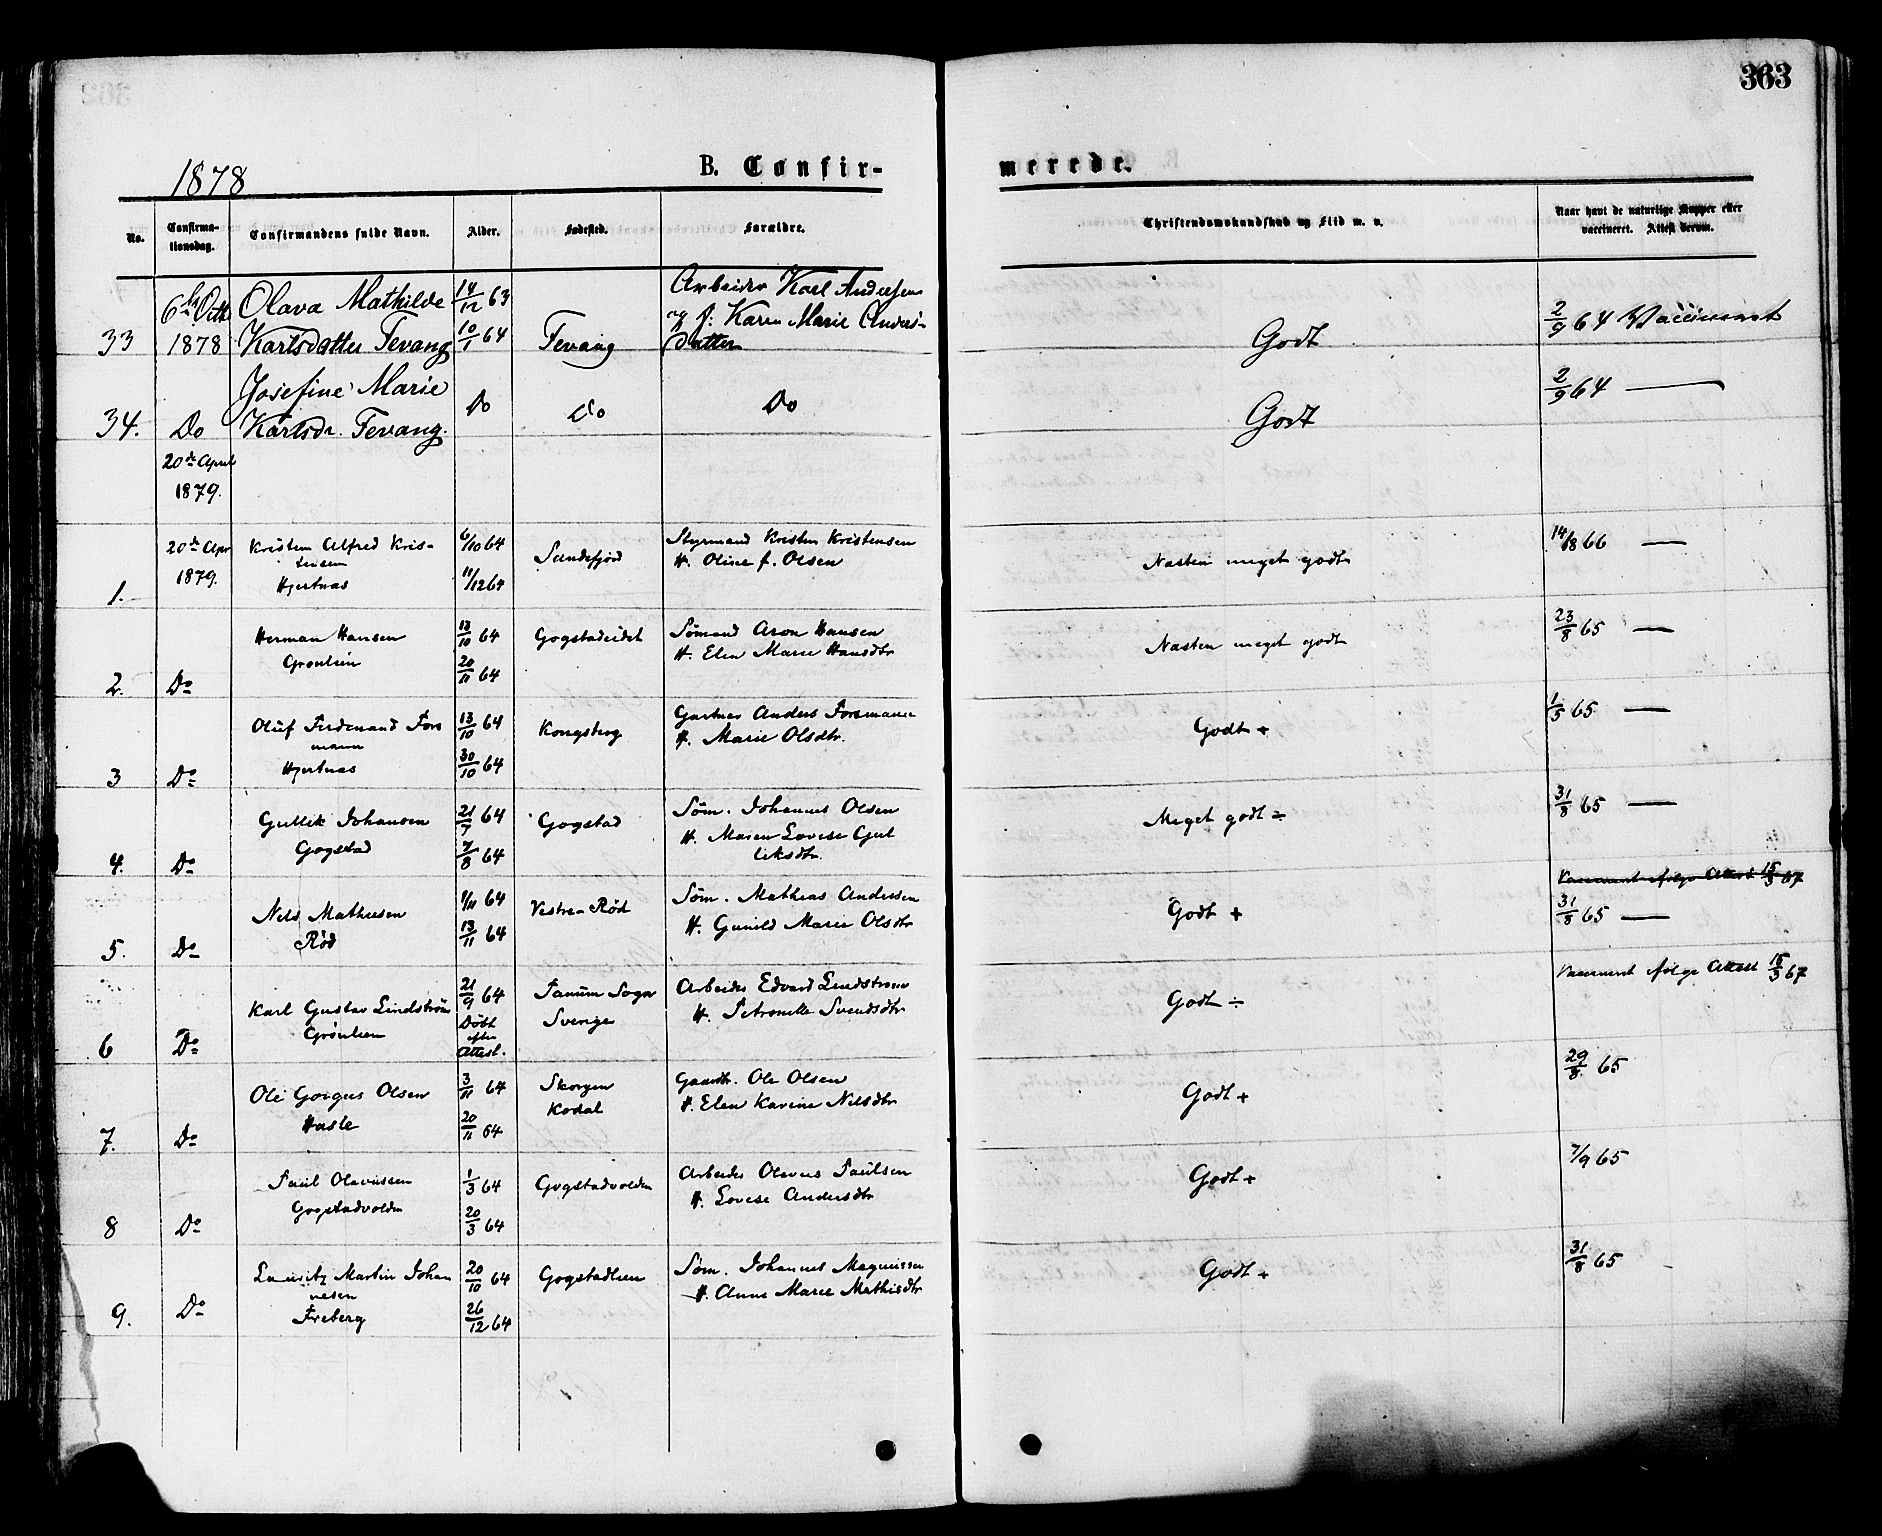 363
1878
B. Confir-
merede.
No.
Confirma-
tionsdag.
Confirmandens fulde Navn.
Alder.
Fødested.
Forældre.
Christendomskundskab og Flid m. v.
Naar havt de naturlige Kopper eller
vaccineret. Attest derom.
33
6te Octb
1878
Olava Mathilde
Karlsdatter Fevang
14/12 63
10/1 64
Fevang
Arbeider Karl Andersen
og f: Karen Marie Anders-
datter
Godt
2/9 64 Vaccineret
34.
Do
Josefine Marie
Karlsdr. Fevang.
Do
do
Do
Godt
2/9 64 —
20de April
1879.
1.
20de Apr
1879.
Kristen Alfred Kris-
tensen
Hjertnæs
6/10 64
11/12 64
Sandefjord
Styrmand Kristen Kristensen
H. Oline f. Olsen
Næsten meget godt
14/8 66 —
2.
Do
Herman Hansen
Grønlien
13/10 64
20/11 64
Gogstadeidet
Sømand Aron Hansen
H. Elen Marie Hansdtr
Næsten meget godt
23/8 65 —
3
Do
Oluf Ferdinand Fors
mann
Hjertnæs
13/10 64
30/10 64
Kongsberg
Gartner Anders Forsmann
H. Marie Olsdtr.
Godt +
1/5 65 —
4.
Do
Gullik Johansen
Gogstad
21/7 64
7/8 64
Gogstad
Søm. Johannes Olsen
H. Maren Lovise Gul
liksdtr.
Meget godt ÷
31/8 65 —
5.
Do
Nils Mathiesen
Rød
1/11 64
13/11 64
Vestre Rød
Søm. Mathias Andersen
H. Gunild Marie Olsdtr
Godt +
Vaccineret ifølge Attest 15/3 67
31/8 65 —
6
Do
Karl Gustav Lindstrøm
Grønlien
21/9 64
Døbt
efter
Attest.
Tanum Sogn
Sverige
Arbeider Edvard Lindstrøm
H. Petronille Svendsdtr
Godt ÷
Vaccineret ifølge Attest 15/3 67
7.
Do
Ole Gorgus Olsen
Hasle
3/11 64
20/11 64
Skorgen
Kodal
Gaardbr. Ole Olsen
H. Elen Karine Nilsdtr
Godt +
29/8 65
8
Do
Paul Olavussen
Gogstadvolden
1/3 64
20/3 64
Gogstadvolden
Arbeider Olavus Paulsen
H. Lovise Andersdtr
Godt +
7/9 65
9.
Do
Lauritz Martin Johan
nesen
Freberg
20/10 64
26/12 64
Gogstadlien
Søm. Johannes Magnussen
H. Anne Marie Mathisdtr
Godt +
31/8 65